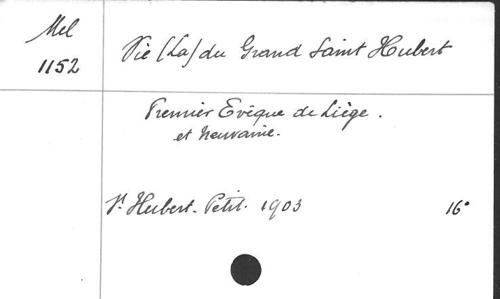 Mel
1152
Vie (La) du Grand Saint Hubert
Premier Evêque de Liège.
et neuvaine.
St Hubert. Petit. 1903 16°